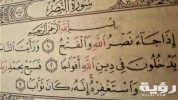 سورة النصر
بسم الله الرحمن الرحيم
إذا جاء نصر الله والفتح ورأيت الناس
يدخلون في دين الله أفواجا فسبح بحمد ربك
واستغفره إنه كان توابا
رؤية